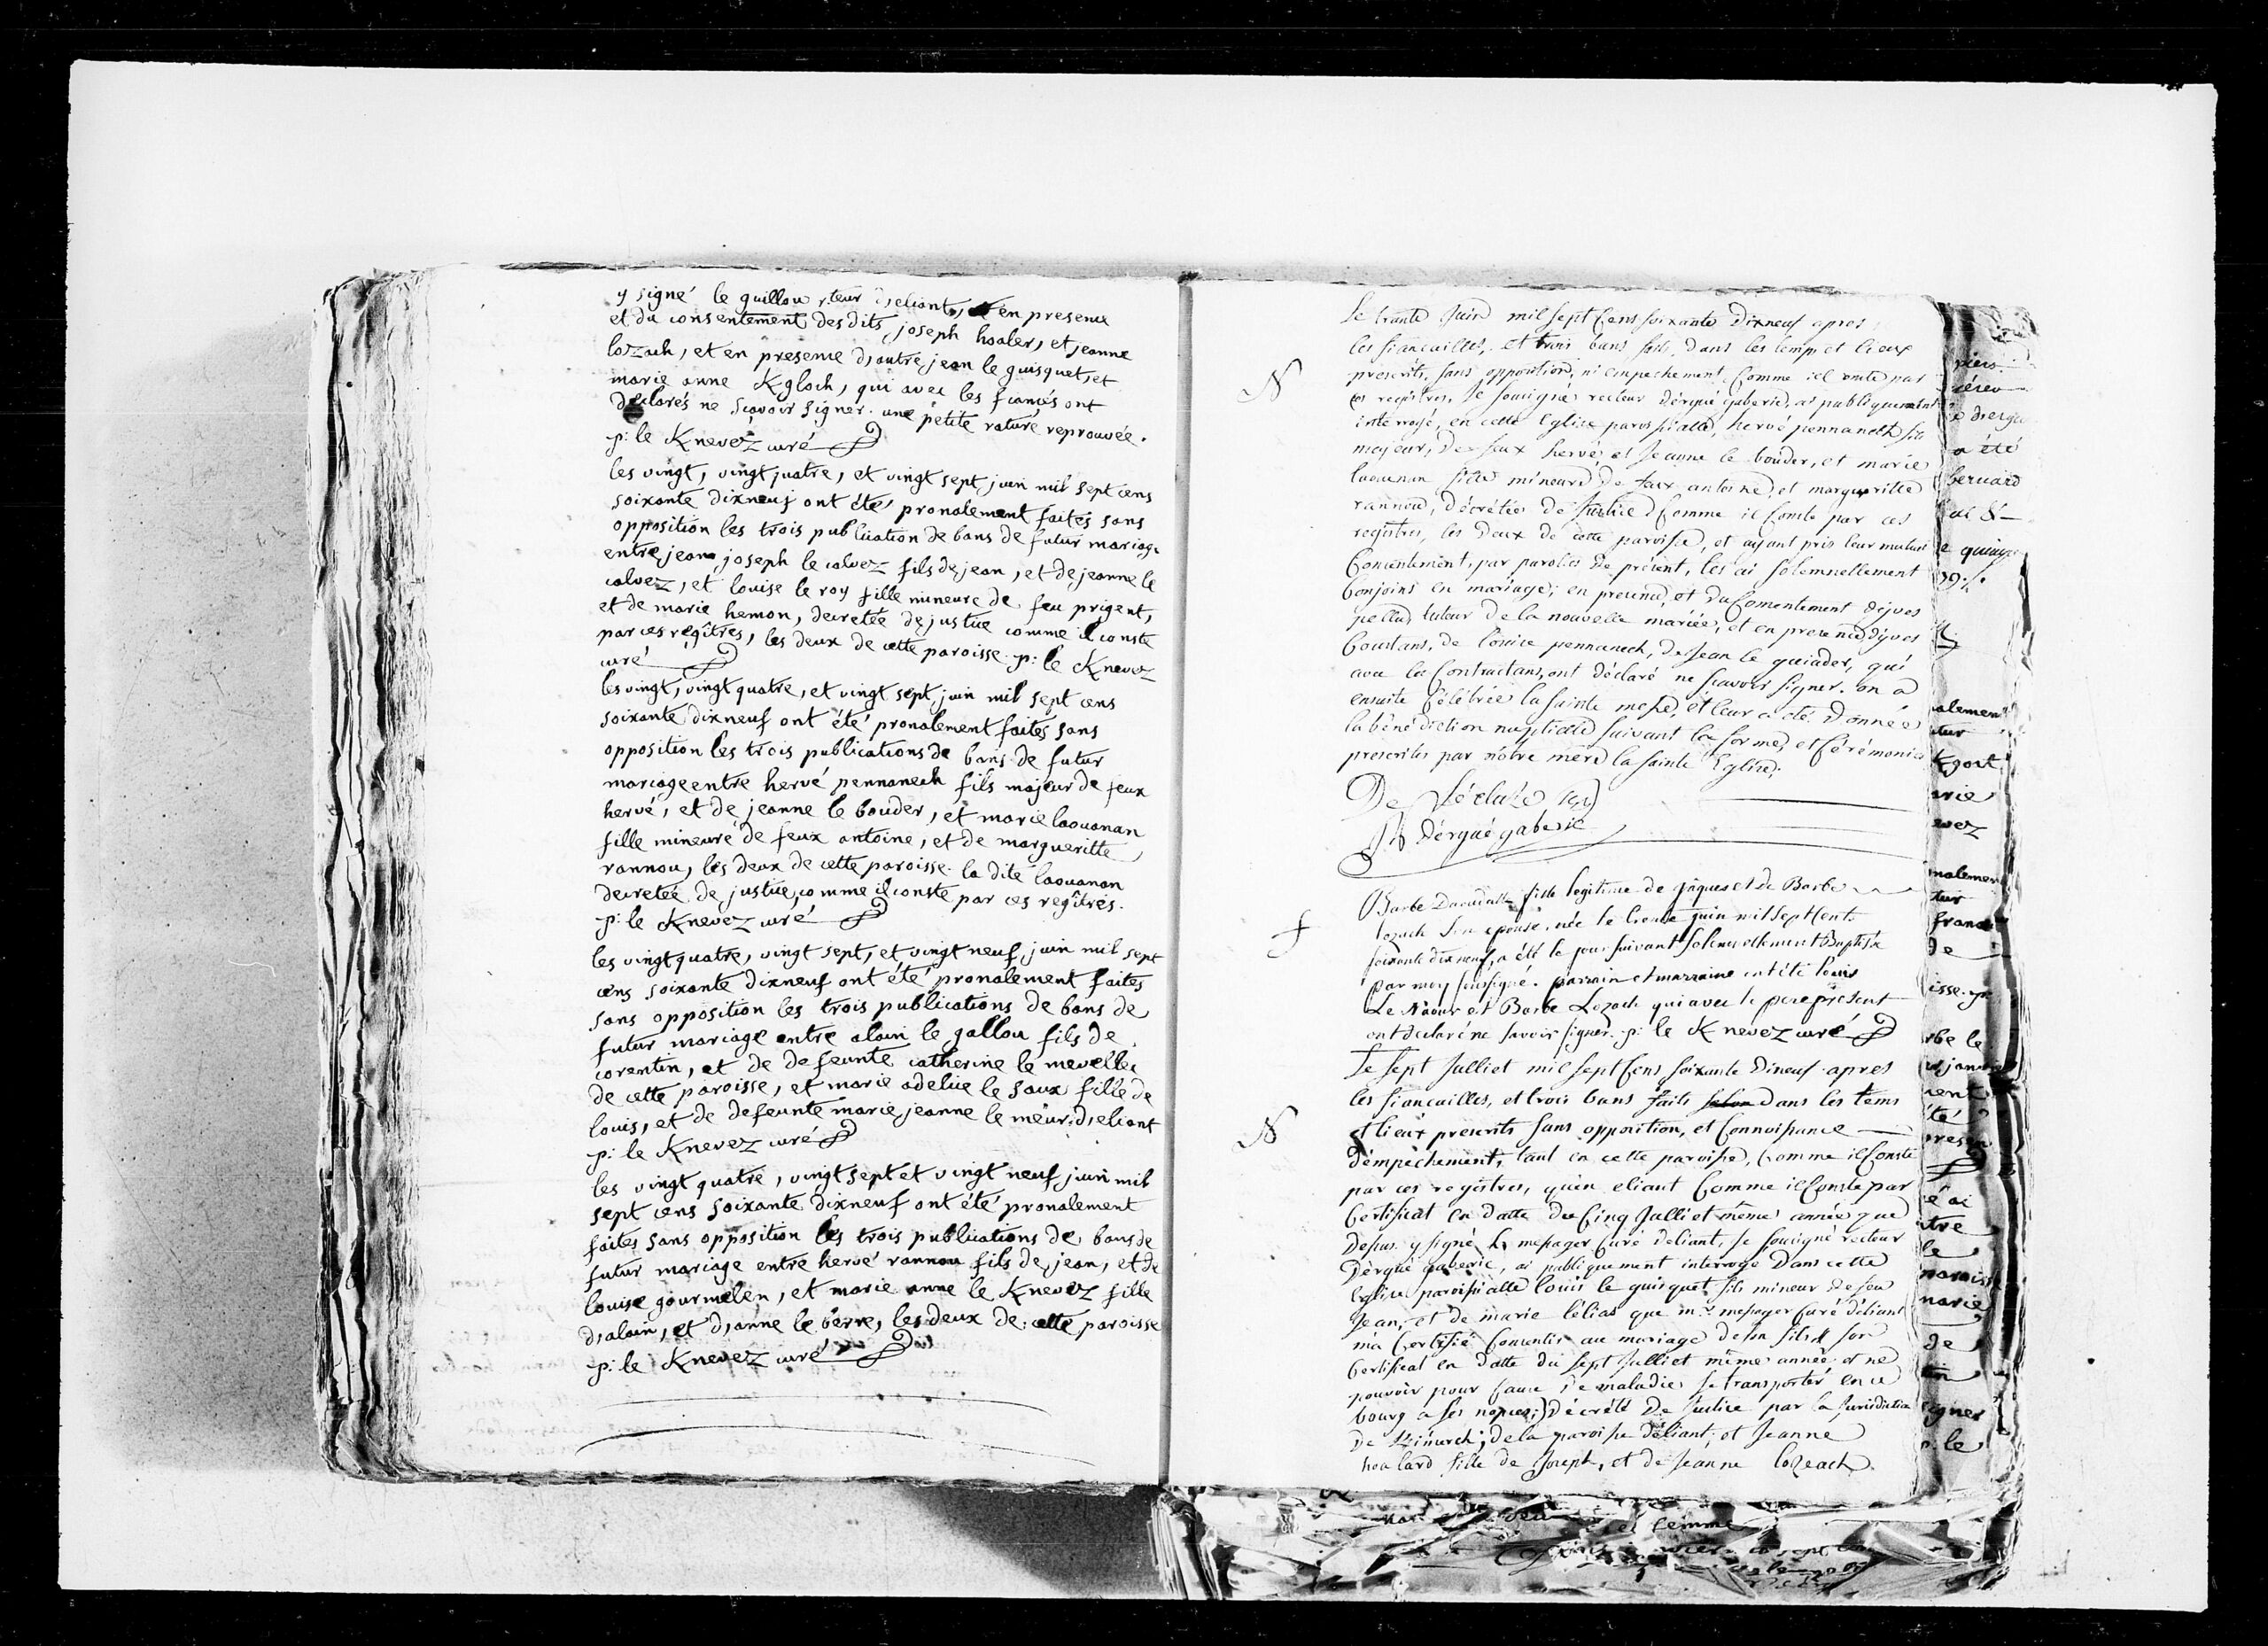 y signé le guillou r.teur d,eliant, en presence
et du consentement des dits joseph hoaler, et jeanne
lozach, et en presence d,autre jean le guisquet, et
marie anne Kgloch, qui avec les fiancés ont
declarés ne sçavoir signer. une pétite rature reprouvée.
p: le Knevez curé
les vingt, vingt quatre, et vingt sept juin mil sept cens
soixante dixneuf ont été pronalement faites sans
opposition les trois publication de bans de futur mariage
entre jean joseph le calvez fils de jean, et de jeanne le
calvez, et louise le roy fille mineure de feu prigent,
et de marie hemon, decretée de justice comme il conste
par ces regîtres, les deux de cette paroisse. p: le Knevez
curé
les vingt, vingt quatre, et vingt sept juin mil sept cens
soixante dixneuf ont été pronalement faites sans
opposition les trois publications de bans de futur
mariage entre hervé pennanech fils majeur de feux
hervé, et de jeanne le bouder, et marie laouanan
fille mineure de feux antoine, et de margueritte
rannou, les deux de cette paroisse. la dite laouanan
decretée de justice, comme il conste par ces regîtres.
p: le Knevez curé
les vingt quatre, vingt sept, et vingt neuf juin mil sept
cens soixante dixneuf ont été pronalement faites
sans opposition les trois publications de bans de
futur mariage entre alain le gallou fils de
corentin, et de defeunte catherine le mevellec
de cette paroisse, et marie adelice le saux fille de
louis, et de defeunte marie jeanne le meür, d,eliant
p: le Knevez curé
les vingt quatre, vingt sept et vingt neuf juin mil
sept cens soixante dixneuf ont été pronalement
faites sans opposition les trois publications de bans de
futur mariage entre hervé rannou fils de jean, et de
louise gourmelen, et marie anne le Knevez fille
d,alain, et d,anne le berre, les deux de cette paroisse
p: le Knevez curé
Le trante Juin mil sept Cens soixante Dixneuf apres
les fiancailles, et trois bans faits, dans les temps et lieux
N
prescrits, sans opposition, ni empechement Comme il conste par
ces regîtres, Je soussigné recteur d'ergué gaberic, ai publiquement
interrogé, en cette Eglise paroissialle, hervé pennanech fils
majeur, de feux hervé et Jeanne le bouder, et marie
laouenan fille mineure de feux antoine, et margueritte
rannou, décrétée de Justice Comme il Conste par ces
registres, les deux de cette paroisse, et ayant pris leur mutuel
Consentement, par paroles de présent, les ai solemnellement
Conjoins en mariage; en presence, et du Consentement d'yves
tuteur de la nouvelle mariée, et en presence d'yves
de louise pennanech, de Jean le quiader, qui
avec les Contractans, ont déclaré ne scavoir signer. on a
ensuite Célébrée la sainte messe, et leur a eté Donnée
la bénédiction nuptialle suivant la forme, et Cérémonies
prescrites par nôtre mère la sainte Eglise.
De
Dérgué gaberic
f
Barbe fille legitime de jaques et de Barbe
lozach son epouse, née le trente juin mil sept cent
soixante dix neuf, a été le jour suivant solennellement Baptisée
par moy soussigné. parrain et marraine ont été louis
Le Nâour et Barbe Lozach qui avec le pere present
ont declaré ne savoir signer. p: le Knevez curé
Le sept Julliet mil sept Cens soixante Dineuf apres
les fiancailles, et trois bans faits dans les tems
N
et lieux prescrits sans opposition, et Connoissance
d'empêchement, tant en cette paroisse, Comme il Conste
par ces registres, qu'en eliant Comme il Conste par
Certificat en datte du Cinq Julliet même année que
Dessus y signé le messager Curé deliant, Je soussigné recteur
Dérgué gaberic, ai publiquement interrogé Dans cette
Eglise paroissialle louis le guisquet fils mineur de feu
Jean, et de marie lélias que mr messager Curé déliant
m'a Certifié Consentir au mariage de son fils son
Certificat en datte du sept Julliet même année et ne
pouvoir pour Cause de maladie se transporter en ce
bourg a ses nopces; Décrété De Justice par la Jurisdiction
de la paroisse déliant; et Jeanne
hoalard fille de Joseph, et de Jeanne lozeach.
a été
bernard
le quimper
alement
tur
Kgoat
arie
evez
nalement
tur
de
isse. p:
rbe le
nent
été
presen
é ai
tre
le
paroiss
marie
de
signer
p: le